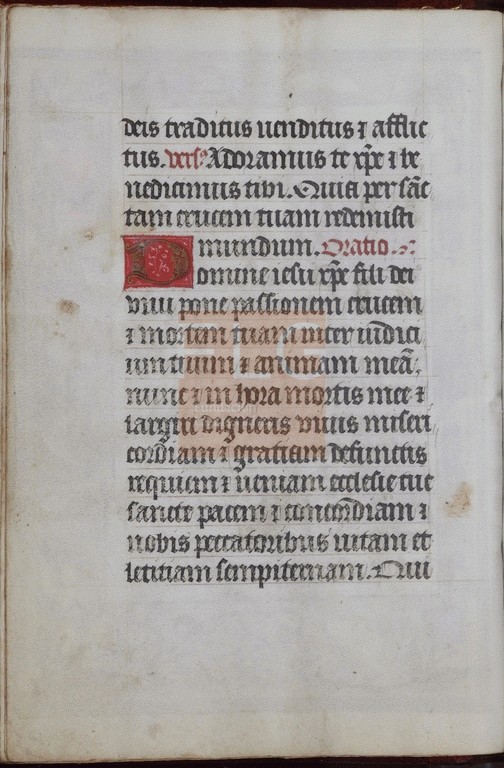 deis traditus uenditus ⁊ afflic
tus. vers⁹ Adoramus te xp̄e ⁊ be
nedicimus tibi. Quia per sāc
tam crucem tuam redemisti
mundum. Oratio.
Domine iesu xp̄e fili dei
viui pone passionem crucem
⁊ mortem tuam inter iudici
um tuum ⁊ animam meā,
nunc ⁊ in hora mortis mee ⁊
largiri digneris viuis miseri
cordiam ⁊ gratiam defunctis
requiem ⁊ ueniam ecclesie tue
sancte pacem ⁊ concordiam ⁊
nobis peccatoribus uitam et
letitiam sempiternam. Qui